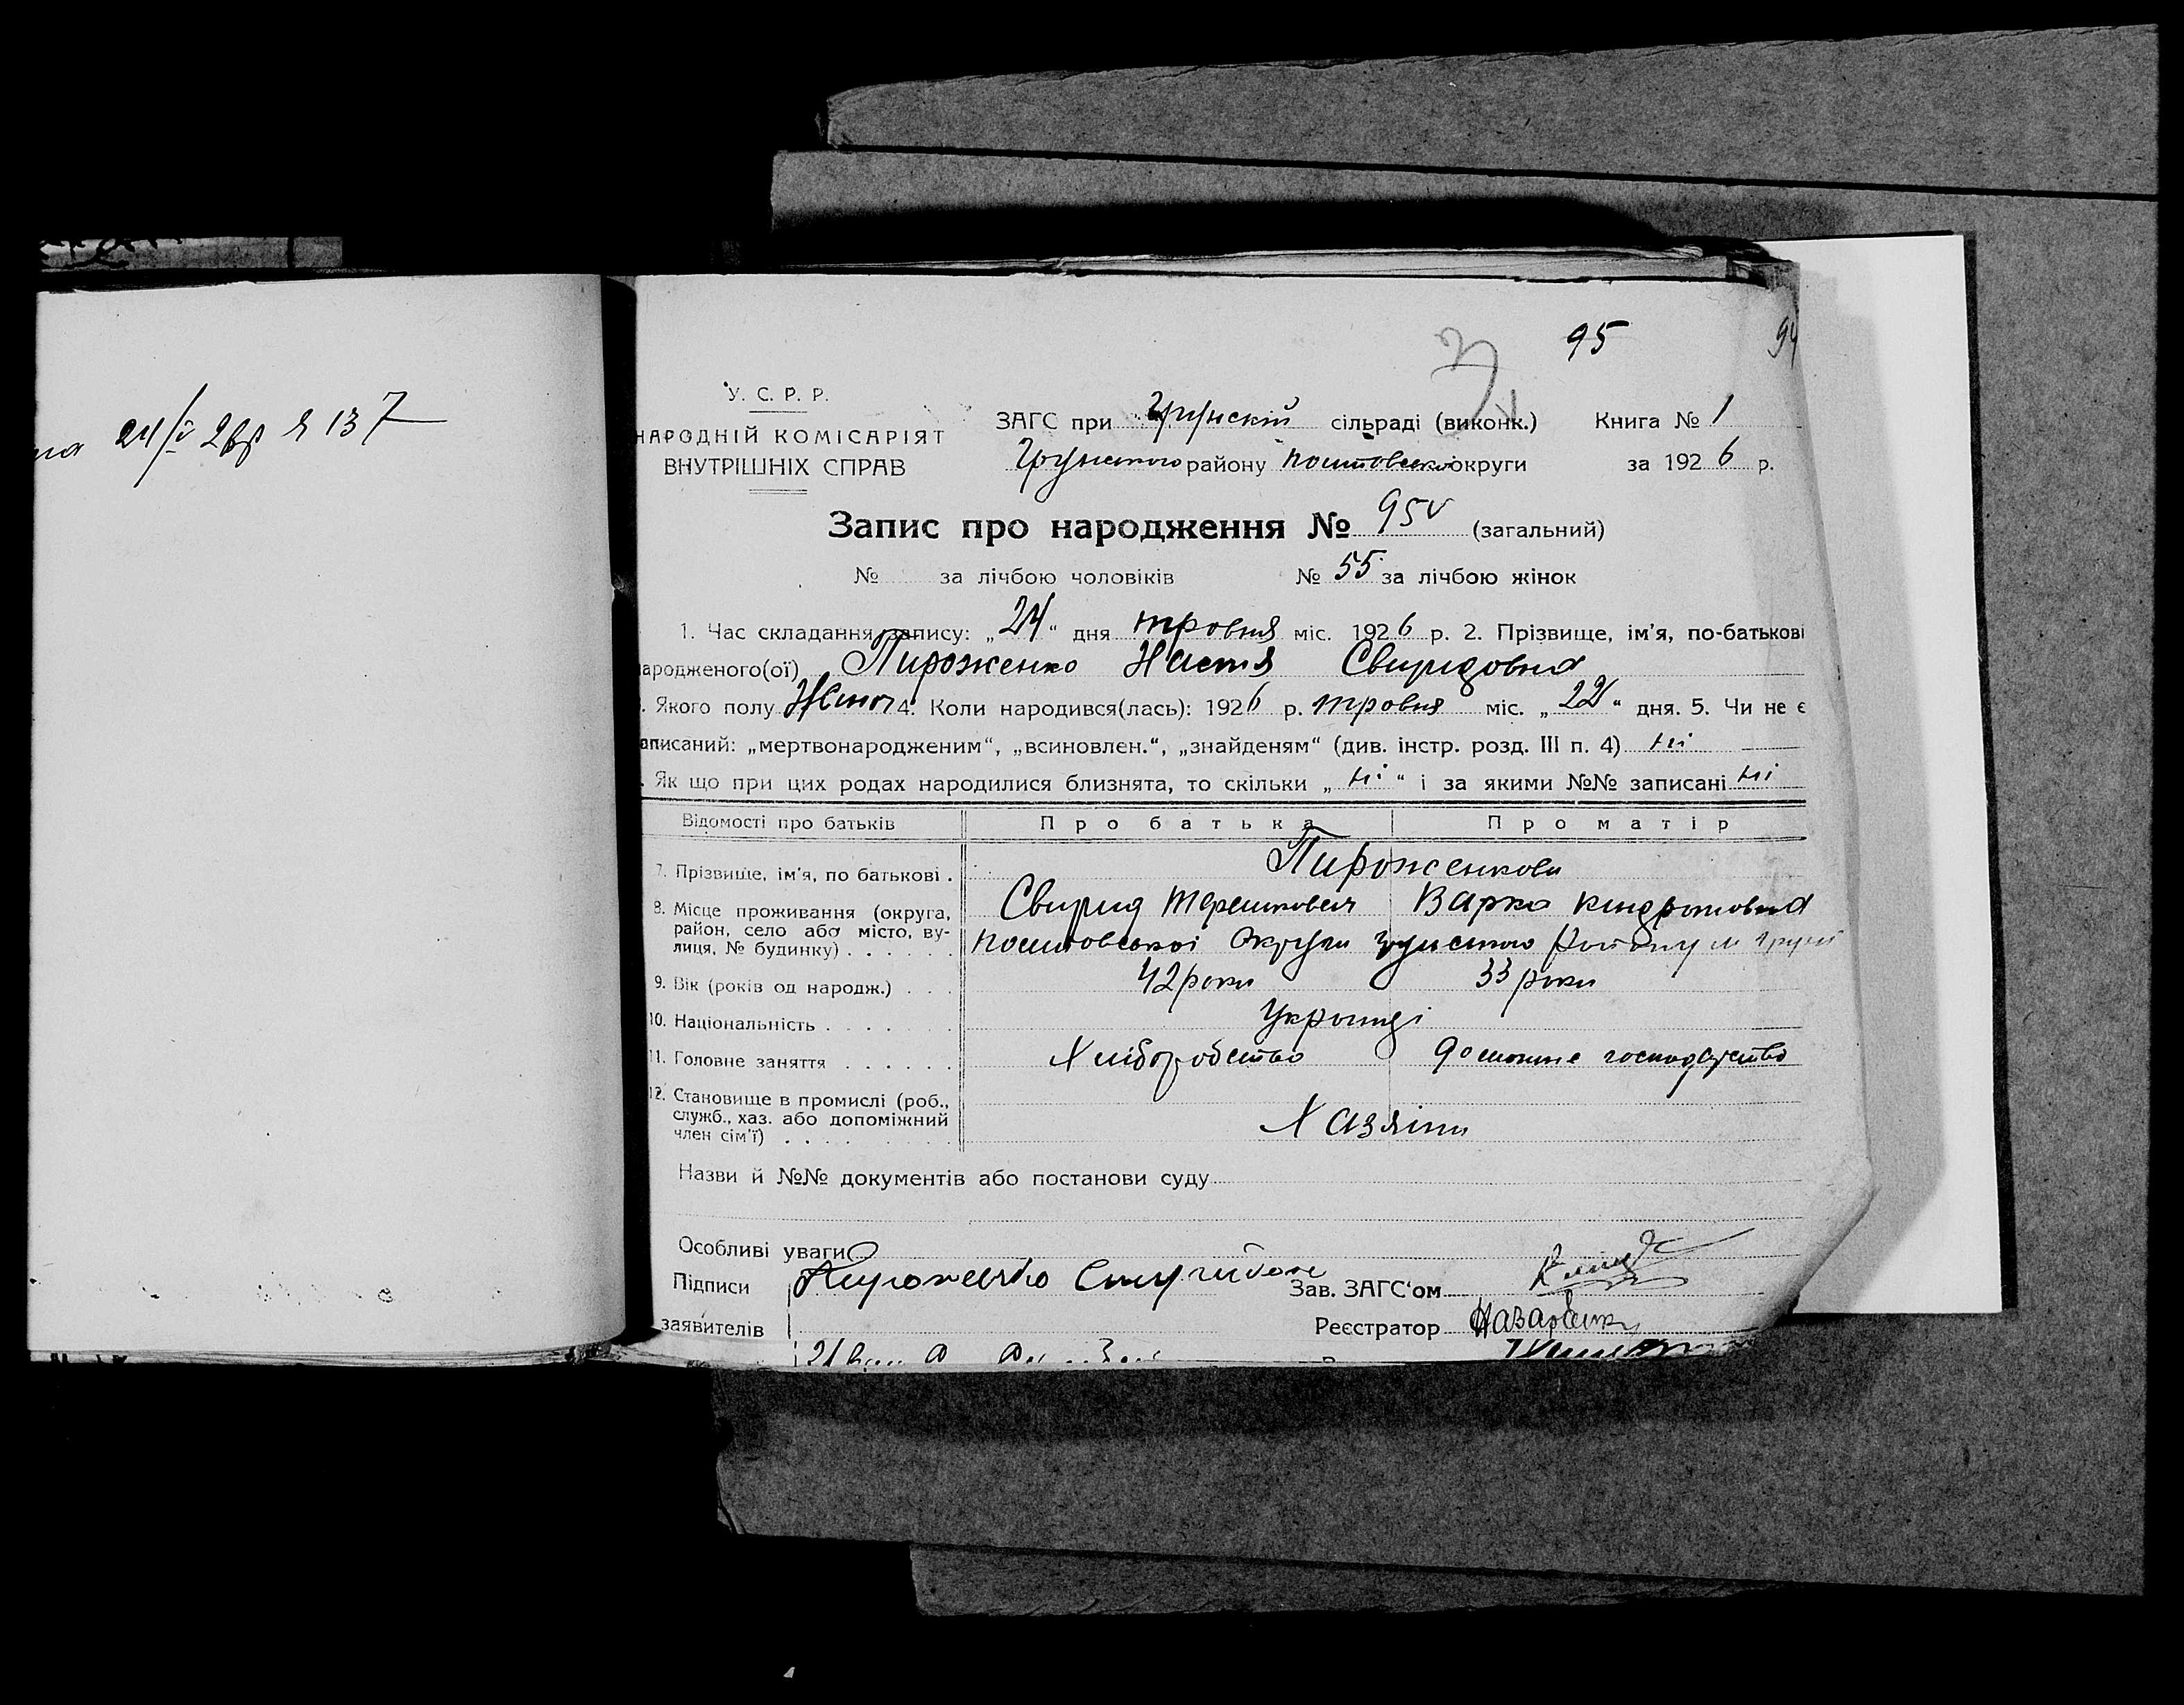 24/V 2вр Я 137
95
94
У. С. Р. Р.
НАРОДНІЙ КОМІСАРІЯТ
ВНУТРІШНІХ СПРАВ
ЗАГС при Грунскій сільраді (виконк.) Книга № 1
Грунського району Полтовської округи за 1926 р.
Запис про народження № 95 (загальний)
№ за лічбою чоловіків № 55 за лічбою жінок
1. Час складання запису: „24“ дня тровня міс. 1926 р. 2. Прізвище, ім'я, по-батькові
ародженого(ої) Пироженко Настя Свиридовна
. Якого полу Жіноч 4. Коли народився(лась): 1926 р. тровня міс. „22“ дня. 5. Чи не є
аписаний: „мертвонародженим“, „всиновлен.“, „знайденям“ (див. інстр. розд. III п. 4) ні
. Як що при цих родах народилися близнята, то скільки „ні“ і за якими №№ записані ні
Відомості про батьків Про батька Про матір
7. Прізвище, ім'я, по батькові . Пироженкови
Свирид Терешкович Варка Кіндратовна
8. Місце проживання (округа,
район, село або місто, ву-
лиця, № будинку) . . . . . . Полтовської Округи Грунського Району м Груні
9. Вік (років од народж.) . . . 42 роки 33 роки
10. Національність . . . . Українці
11. Головне заняття . . . . . . Хліборобство домашнє господарство
12. Становище в промислі (роб.,
служб., хаз. або допоміжний
член сім'ї) . . . . Хазяіни
Назви й №№ документів або постанови суду
Особливі уваги
Підписи Пироженко Зав. ЗАГС'ом
заявителів Реєстратор Назаренко